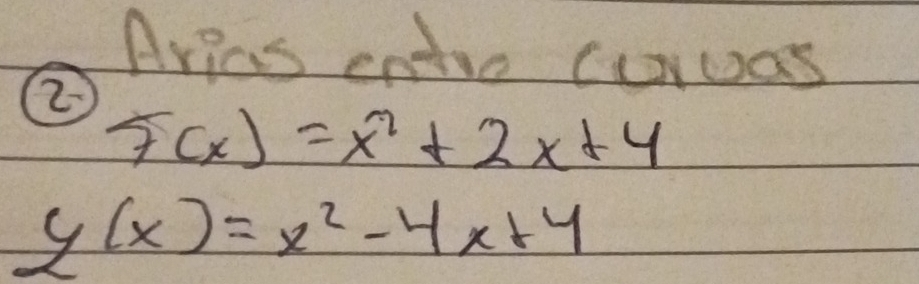 Arias entre curvas
2-
f(x) = x² + 2x + 4
y(x) = x² - 4x + 4